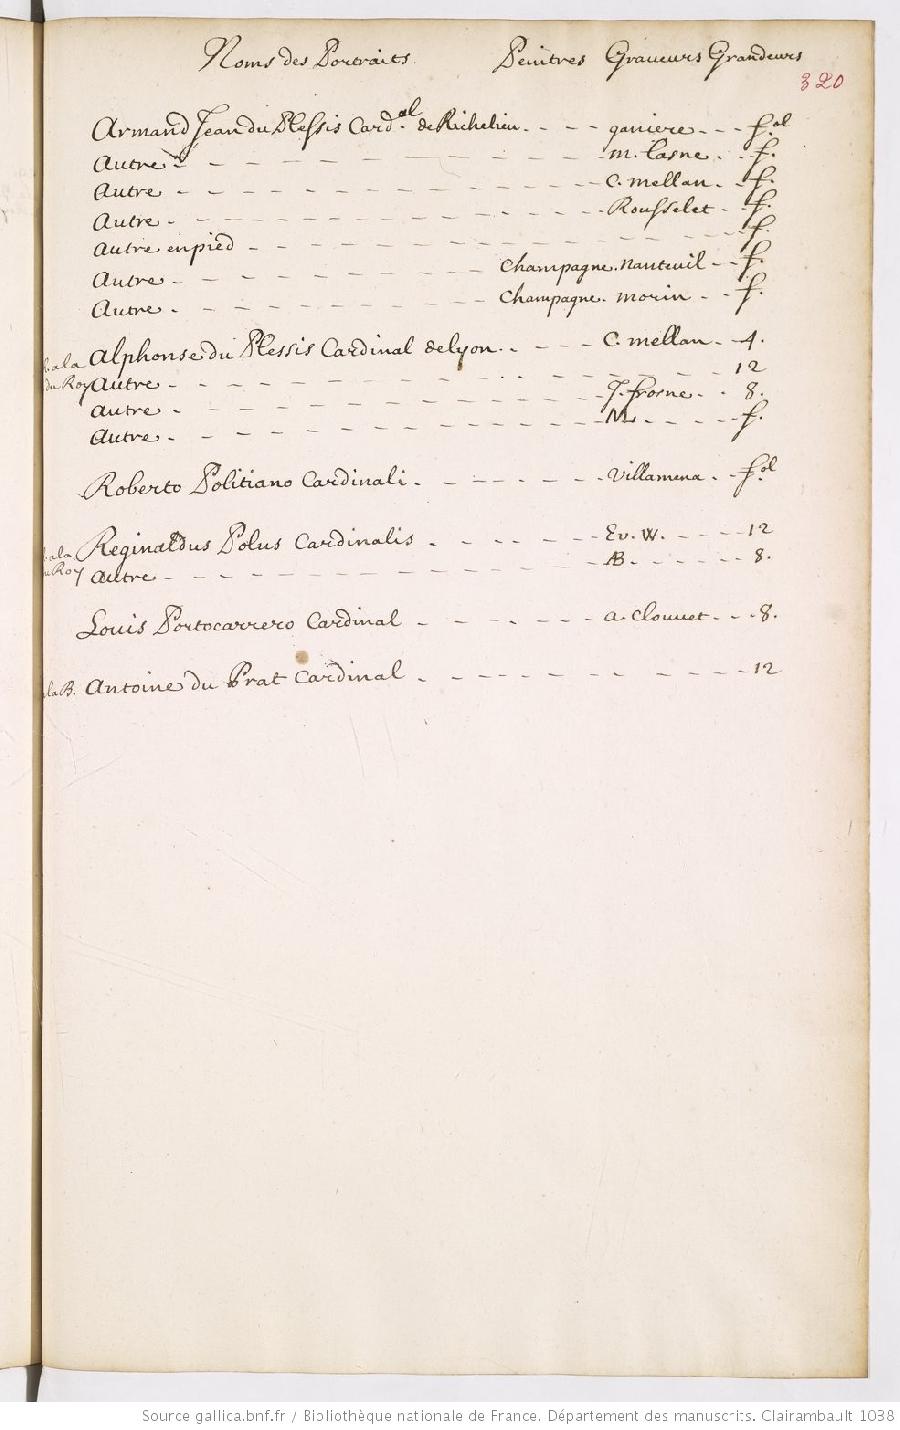 Noms des Portraits Peintres Graveurs Grandeurs
320
Armand Jean du Plessis Card.al de Richelieu - - - ganiere - - - f.ol
Autre - - - - - - - m. Lasne - - f.
Autre - - - - - - - C. mellan - - f.
Autre - - - - - - - Rousselet - f.
Autre en pied - - - - - - - f.
Autre - - - - - - Champagne. Nanteuil - - f.
Autre - - - - - - Champagne. morin - - f.
Alphonse du Plessis Cardinal de lyon - - - - C. mellan - 4.
Autre - - - - - - - 12
du Roy
Autre - - - - - - - J. frosne - - 8.
Autre - - - - - - - M - - - - f.
Roberto Politiano Cardinali - - - - - - Villamena - f.ol
Reginaldus Polus Cardinalis - - - - - Ev. W. - - - - 12
Roy
Autre - - - - - - - AB - - - - 8.
Louis Portocarrero Cardinal - - - - - - a. Clouuet - - - 8.
a la B. Antoine du Prat Cardinal - - - - - - - - 12
Source gallica.bnf.fr / Bibliothèque nationale de France. Département des manuscrits. Clairambault 1038